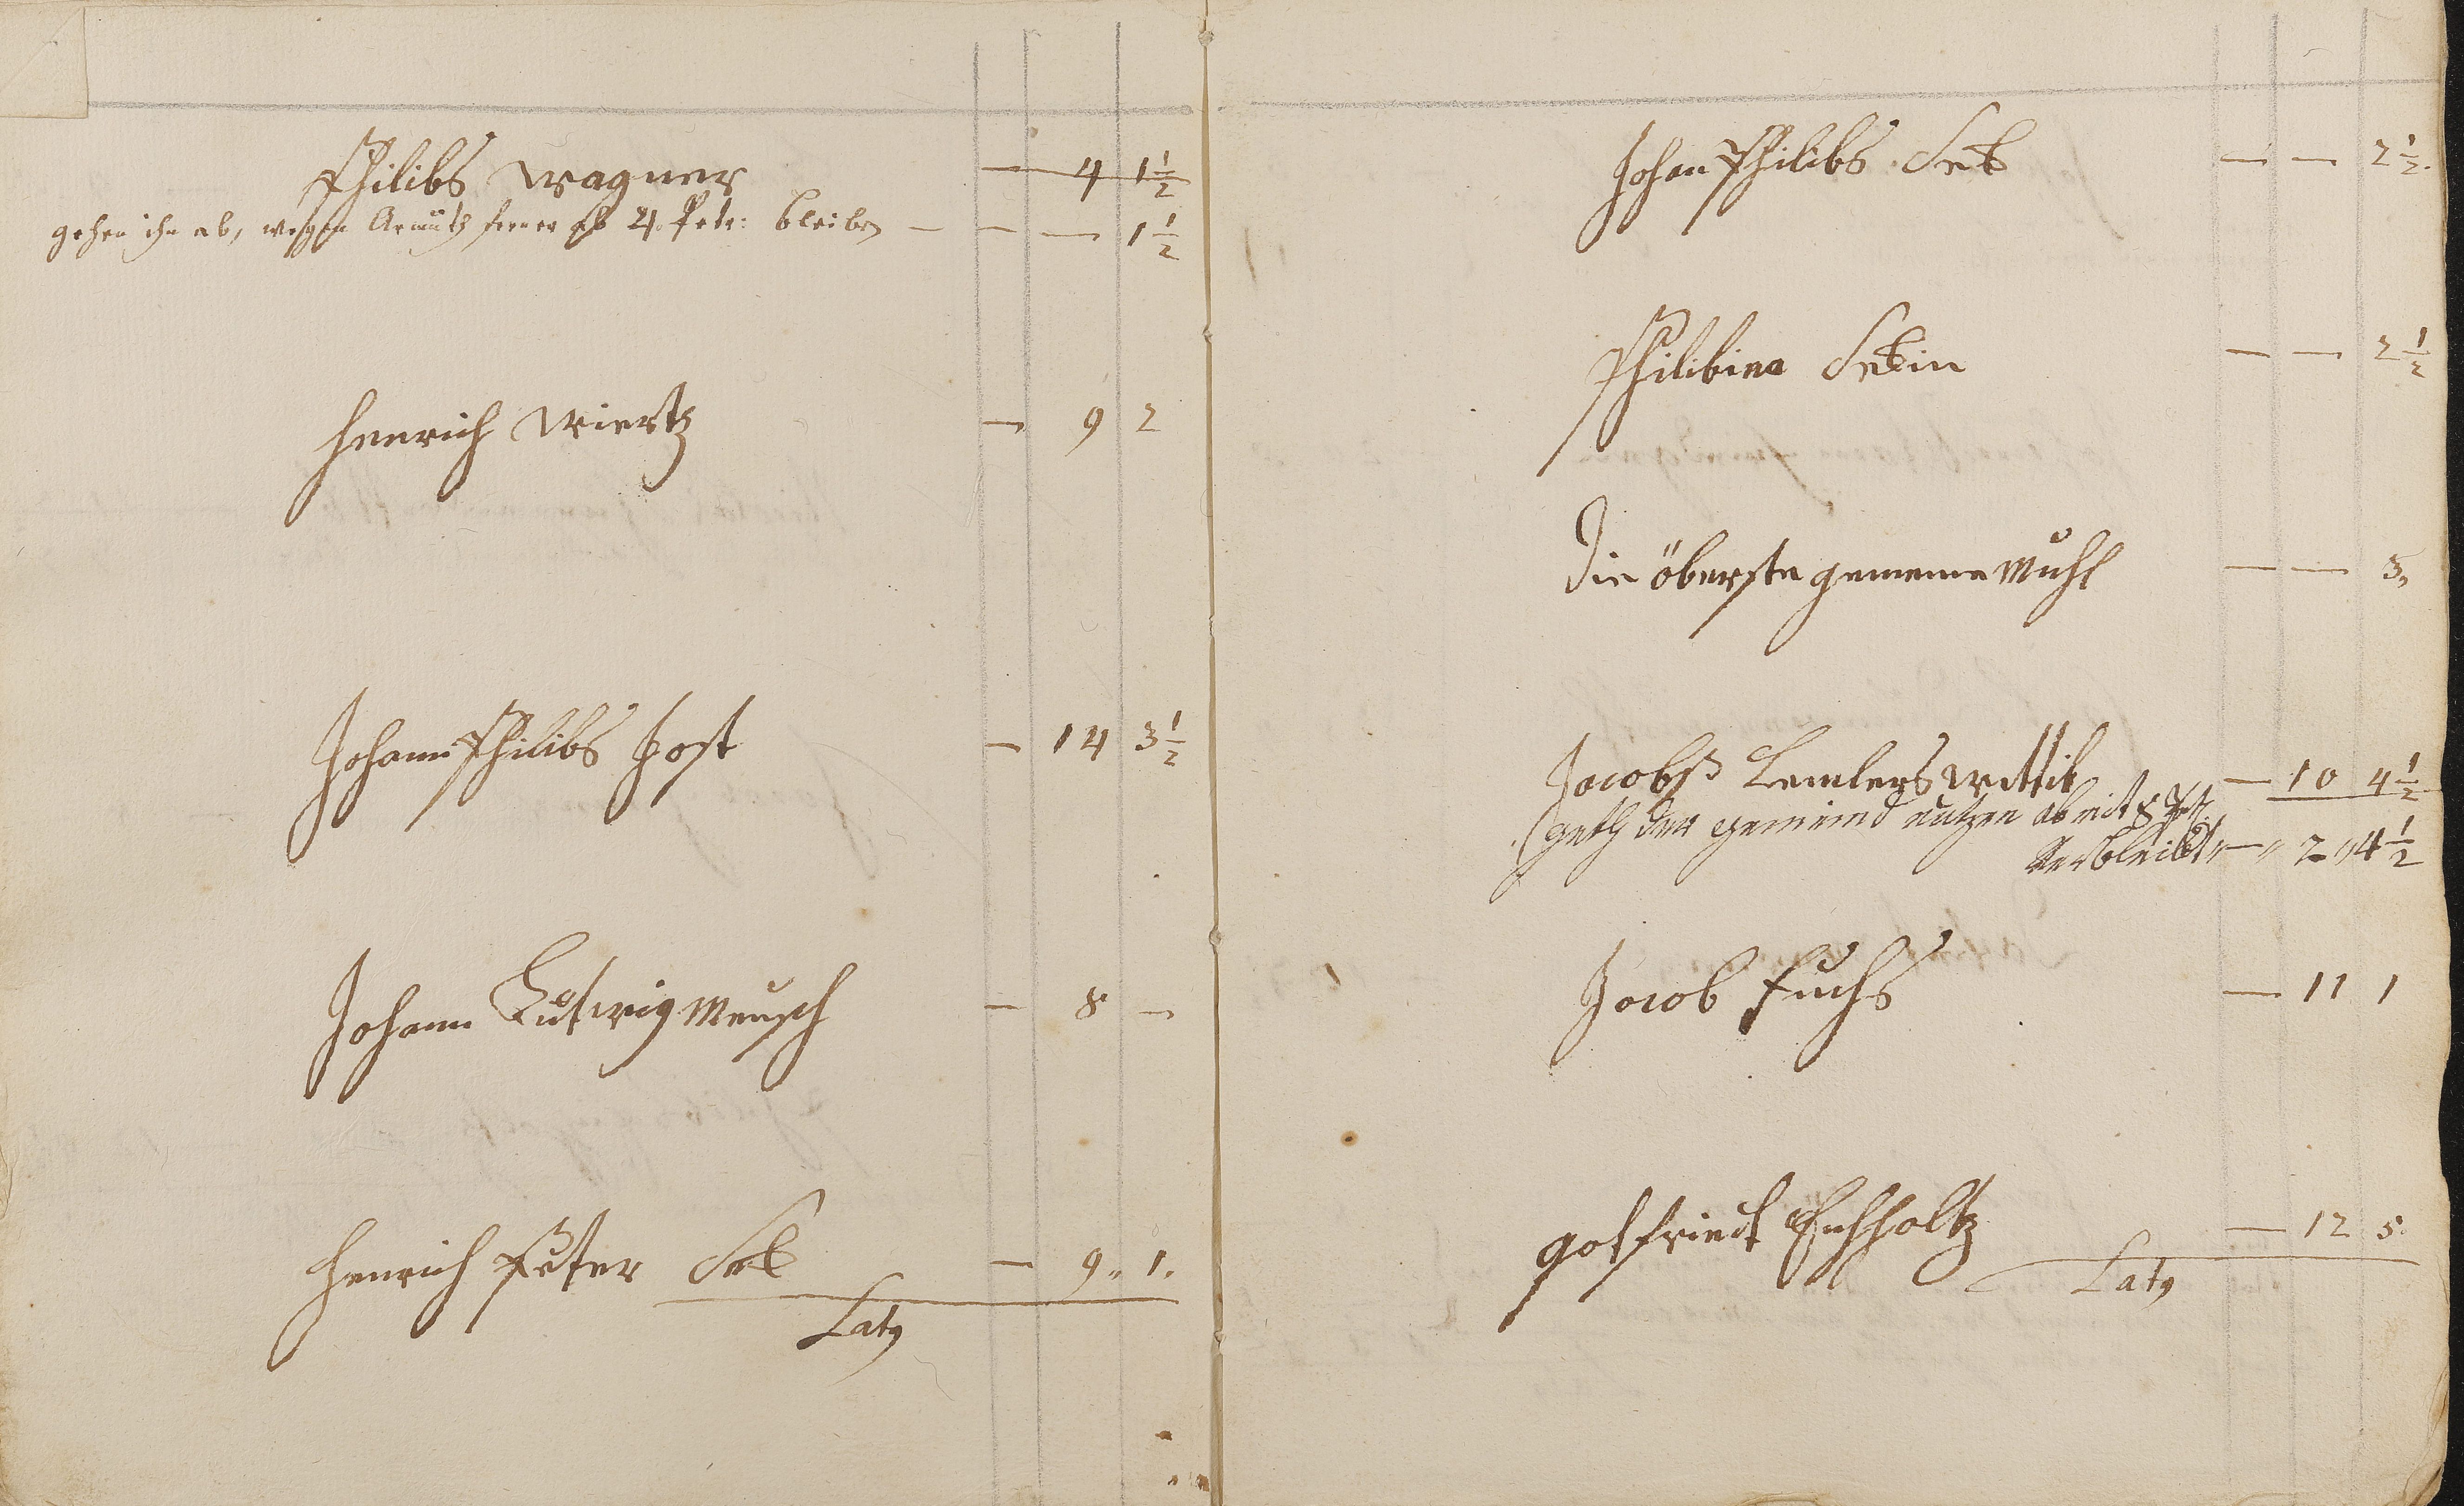 Philibs Wagner — 4 1½
gehen ihn ab, wegen Armuth ferner ab 4. Petr: bleiben — — — 1½
Henrich Wiertz — 9 2
Johann Philibs Jost — 14 3½
Johann Ludwig Meusch — 8 —
Henrich Peter — 9. 1.
Latg
Johan Philibs — — 2½.
Philibina — — 2½
Die öberste gemeine Muhl — — 3,
Jacobß Lemlers Wittib — 10 4½
geth der gemeind nutzen ab mit 8
verbleibt — 2 4½
Jacob Fuchs — 11 1
Gotfriedt Eichholtz — 12 5.
Latg